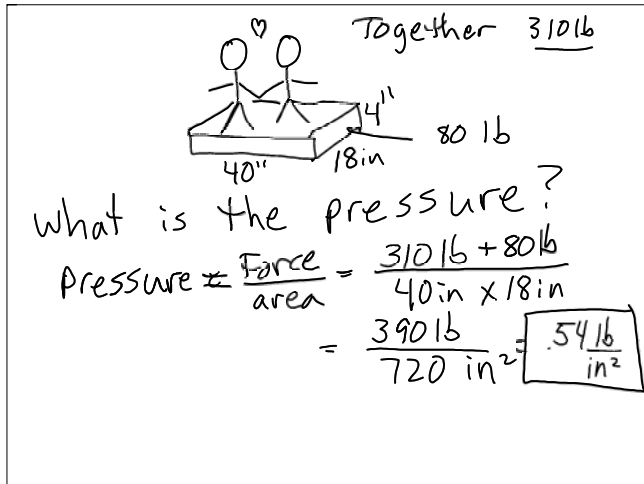 Together 310lb
4"
80 lb
40"
18in
What is the pressure?
Pressure = Force/area = 310lb + 80lb/40in x 18in
= 390lb/720 in² = .54 lb/in²